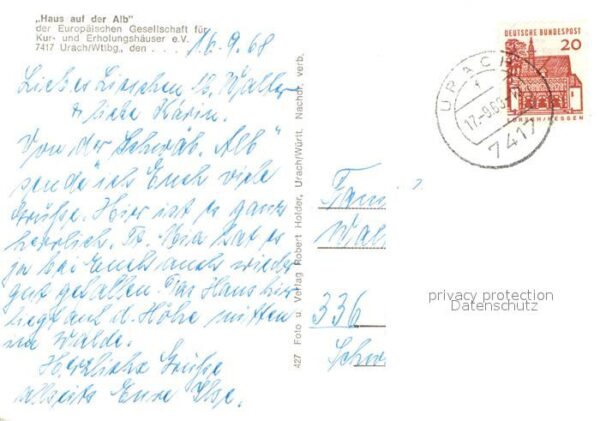 „Haus auf der Alb"
der Europäischen Gesellschaft für
Kur- und Erholungshäuser e.V.
7417 Urach/Wttbg., den . . . 16.9.68
Liebes Lieschen, Walter
& liebe Karin.
Von der Schwäb. Alb
sende ich Euch viele
Grüße. Hier ist es ganz
herrlich. Tt. Mia hat es
ja bei Euch auch wieder
gut gefallen. Das Haus hier
liegt auf d. Höhe mitten
im Walde.
Herzliche Grüße
allseits Eure Else.
427 Foto u. Verlag Robert Holder, Urach/Württ. Nachdr. verb.
DEUTSCHE BUNDESPOST
20
LORSCH/HESSEN
URACH
17.-9.68
7417
Fami
Wal
336
Schw
privacy protection
Datenschutz